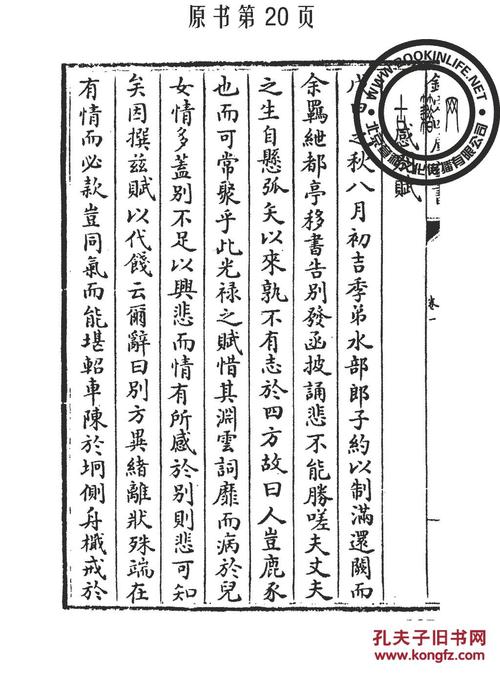 原书第20页
感
赋
之秋八月初吉季弟水部郎子約以制滿還闕而
余羈紲都亭移書告别發函披誦悲不能勝嗟夫丈夫
之生自懸弧矢以來孰不有志於四方故曰人豈鹿豕
也而可常聚乎此光禄之賦惜其淵雲詞靡而病於兒
女情多蓋别不足以興悲而情有所感於别則悲可知
矣因撰兹賦以代餞云爾辭曰别方異緒離狀殊端在
有情而必款豈同氣而能堪軺車陳於坰側舟檝戒於
卷一
WWW.BOOKINLIFE.NET
籍
网
孔夫子旧书网
www.kongfz.com